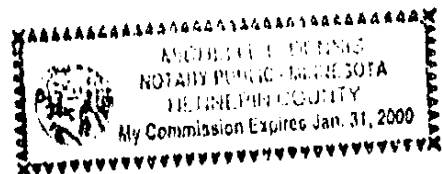 MICHELLE L. DENNIS
NOTARY PUBLIC - MINNESOTA
HENNEPIN COUNTY
My Commission Expires Jan. 31, 2000